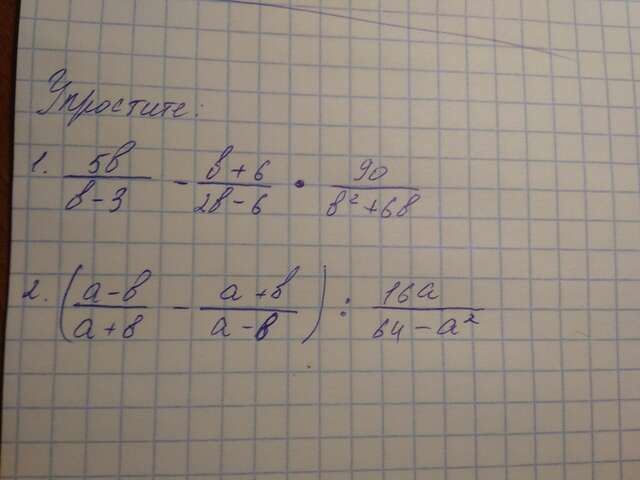 Упростите:
1. 5в/(в-3) - (в+6)/(2в-6) • 90/(в²+6в)
2. ((а-в)/(а+в) - (а+в)/(а-в)) : 16а/(64-а²)